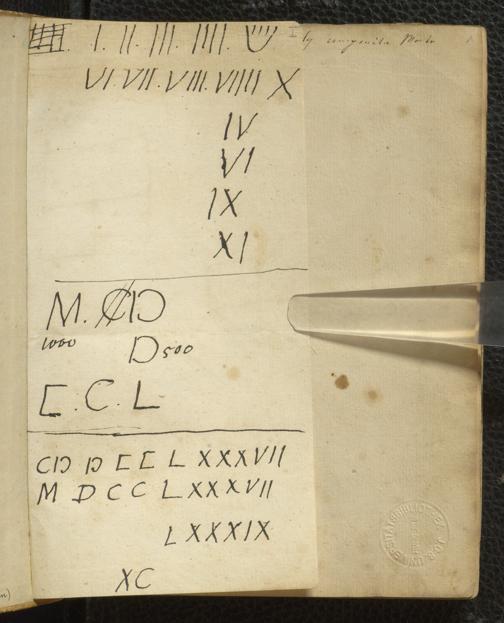 I. II. III. IIII.
VI. VII. VIII. VIIII X
IV
VI
IX
XI
M. CIƆ
1000 D 500
C. L
CIƆ IƆ C C L XXXVII
M D C C L XXXVII
LXXXIX
XC